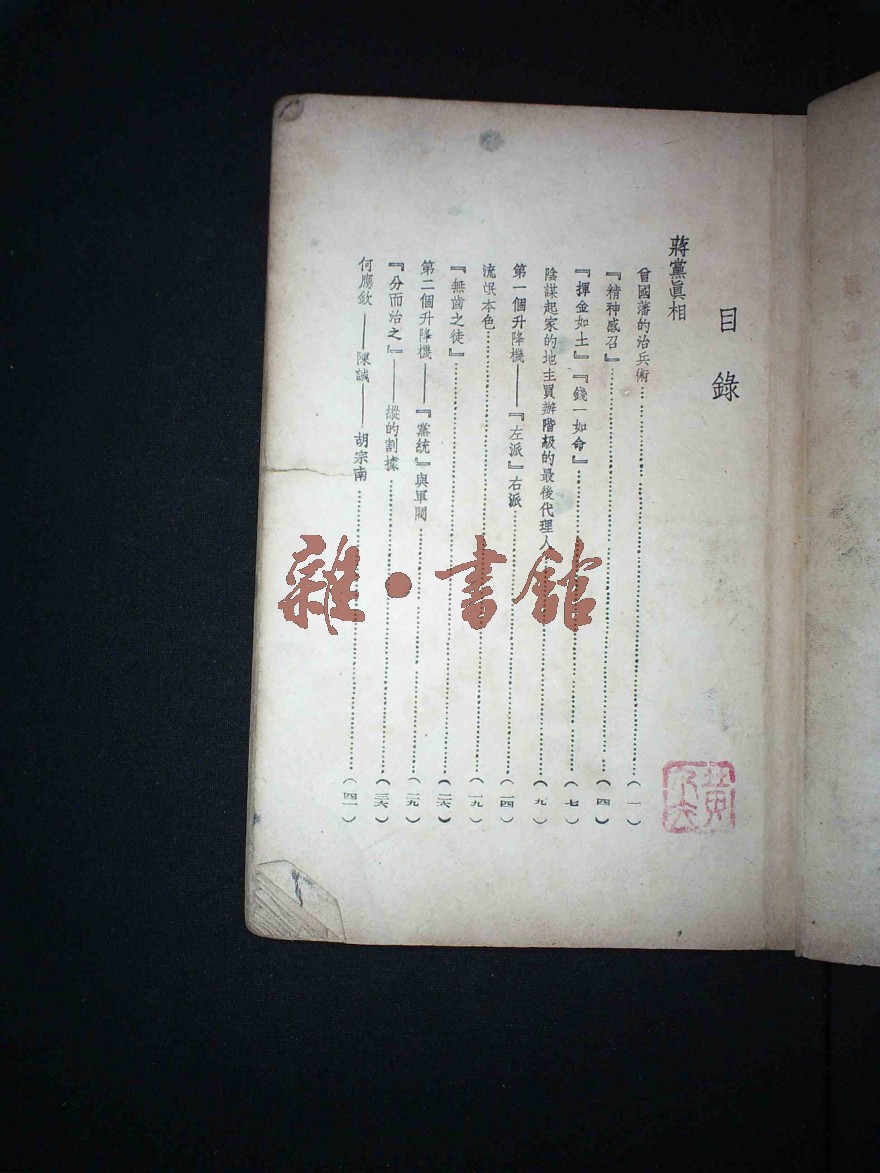 目錄
蔣黨眞相
曾國藩的治兵術……(一)
『精神感召』……(四)
『揮金如土』『錢一如命』……(七)
陰謀起家的地主買辦階級的最後代理人……(九)
第一個升降機——『左派』右派……(一四)
流氓本色……(一九)
『無齒之徒』……(二六)
第二個升降機——『黨統』與軍閥……(二九)
『分而治之』——縱的割據……(三六)
何應欽——陳誠——胡宗南……(四一)
雜·書館